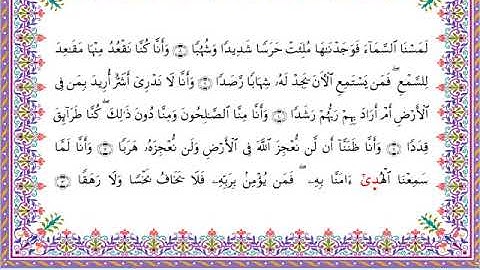 لَمَسْنَا ٱلسَّمَآءَ فَوَجَدْنَـٰهَا مُلِئَتْ حَرَسًا شَدِيدًا وَشُهُبًا ۝ وَأَنَّا كُنَّا نَقْعُدُ مِنْهَا مَقَـٰعِدَ
لِلسَّمْعِ ۖ فَمَن يَسْتَمِعِ ٱلْـَٔانَ يَجِدْ لَهُۥ شِهَابًا رَّصَدًا ۝ وَأَنَّا لَا نَدْرِىٓ أَشَرٌّ أُرِيدَ بِمَن فِى
ٱلْأَرْضِ أَمْ أَرَادَ بِهِمْ رَبُّهُمْ رَشَدًا ۝ وَأَنَّا مِنَّا ٱلصَّـٰلِحُونَ وَمِنَّا دُونَ ذَٰلِكَ ۖ كُنَّا طَرَآئِقَ
قِدَدًا ۝ وَأَنَّا ظَنَنَّآ أَن لَّن نُّعْجِزَ ٱللَّهَ فِى ٱلْأَرْضِ وَلَن نُّعْجِزَهُۥ هَرَبًا ۝ وَأَنَّا لَمَّا
سَمِعْنَا ٱلْهُدَىٰٓ ءَامَنَّا بِهِۦ ۖ فَمَن يُؤْمِنۢ بِرَبِّهِۦ فَلَا يَخَافُ بَخْسًا وَلَا رَهَقًا ۝